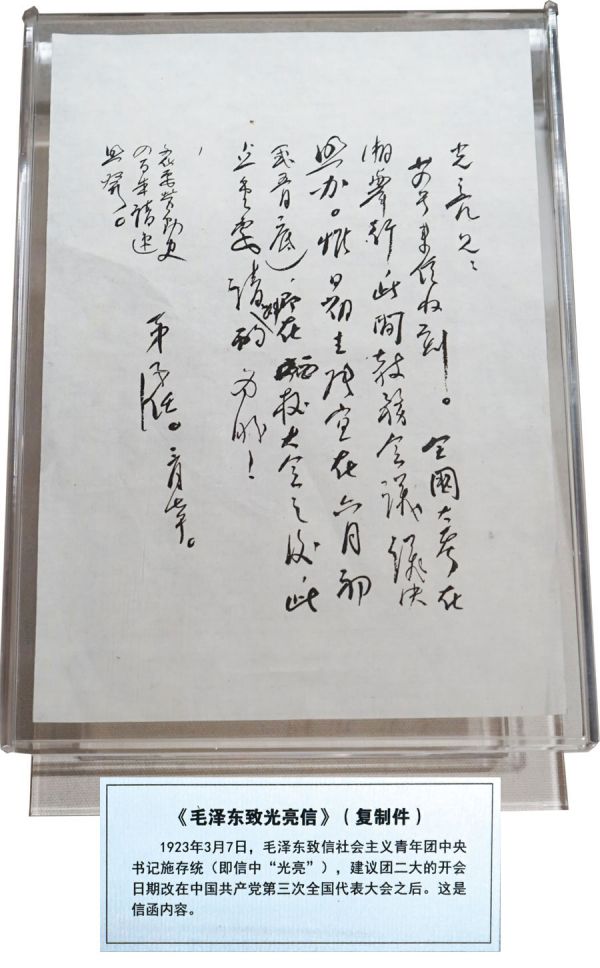 光亮兄：
号来信收到。全国大会在
湘举行，此间教务会议议决
照办。惟日期主张宜在六月初
（或五月底），在校大会之后，此
点重要，请酌为盼！
弟子任。三月七。
劳动史
四百本请速
照发。
《毛泽东致光亮信》（复制件）
1923年3月7日，毛泽东致信社会主义青年团中央
书记施存统（即信中“光亮”），建议团二大的开会
日期改在中国共产党第三次全国代表大会之后。这是
信函内容。